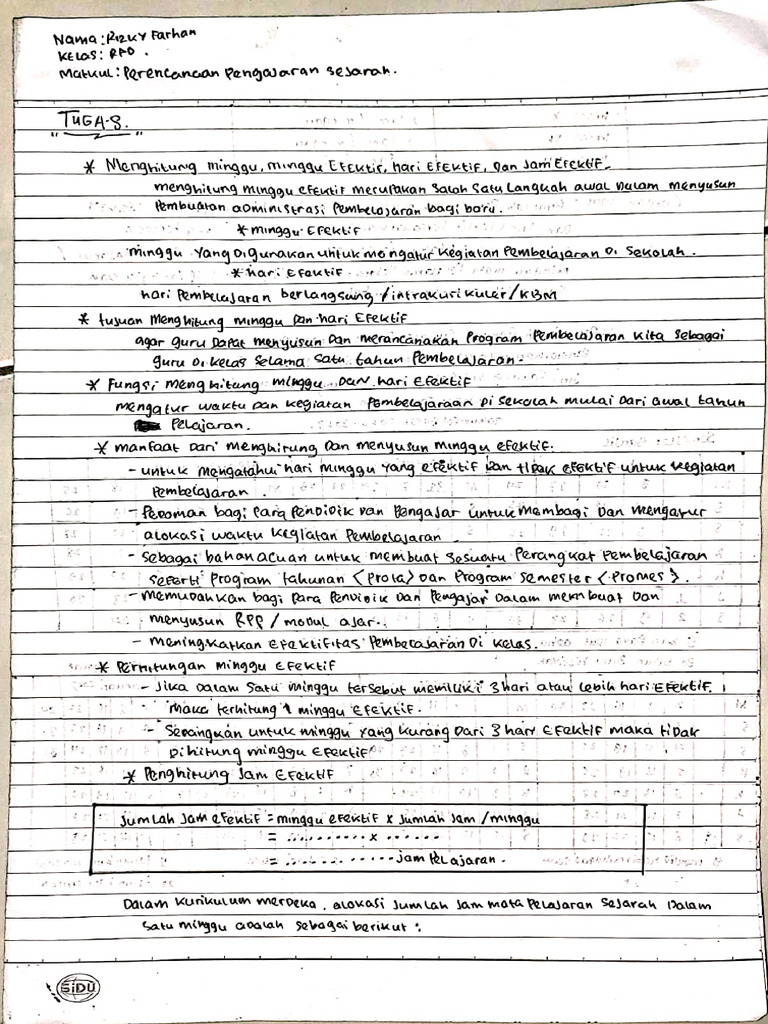 Nama: Rizky Farhan
Kelas: RPD.
Matkul: Perencanaan Pengajaran Sejarah.
"TUGAS."
* Menghitung minggu, minggu Efektif, hari Efektif, dan Jam Efektif
menghitung minggu efektif merupakan salah satu langkah awal dalam menyusun
Pembuatan administrasi Pembelajaran bagi
* minggu Efektif
minggu yang digunakan untuk mengatur kegiatan Pembelajaran di sekolah.
* hari Efektif
hari Pembelajaran berlangsung / intrakurikuler / KBM
* tujuan Menghitung minggu dan hari Efektif
agar guru dapat menyusun dan merancanakan Program Pembelajaran kita sebagai
guru di kelas selama satu tahun Pembelajaran.
* Fungsi menghitung minggu dan hari Efektif
mengatur waktu dan kegiatan Pembelajaraan di sekolah mulai dari awal tahun
Pelajaran.
* manfaat dari menghirung dan menyusun minggu efektif.
- untuk mengatahui hari minggu yang efektif dan tidak efektif untuk kegiatan
Pembelajaran.
- Pedoman bagi para pendidik dan Pengajar untuk membagi dan mengatur
alokasi waktu kegiatan Pembelajaran
- sebagai bahan acuan untuk membuat sesuatu Perangkat Pembelajaran
seperti Program tahunan <Prota> dan Program Semester <Promes>.
- memudahkan bagi para Pendidik dan Pengajar dalam membuat dan
menyusun RPP / modul ajar.
- meningkatkan efektifitas Pembelajaran di kelas.
* Perhitungan minggu Efektif
- Jika dalam satu minggu tersebut memiluki 3 hari atau lebih hari Efektif.
maka terhitung 1 minggu Efektif.
- Sedangkan untuk minggu yang kurang dari 3 hari efektif maka tidak
dihitung minggu efektif
* Penghitung Jam Efektif
jumlah jam efektif = minggu efektif x Jumlah Jam / minggu
= ........... x ......
= ............. jam pelajaran.
Dalam kurikulum merdeka, alokasi Jumlah Jam mata Pelajaran Sejarah Dalam
satu minggu adalah sebagai berikut:
SiDU